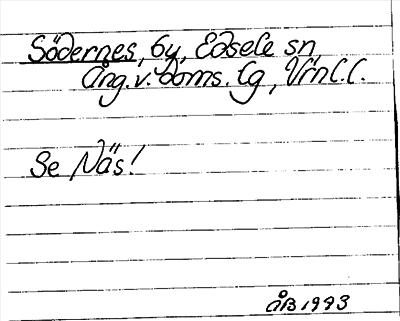 Södernes, by, Edsele sn,
Ång. v. doms. lg, Vrnl. l.
Se Näs!
ÅB 1993